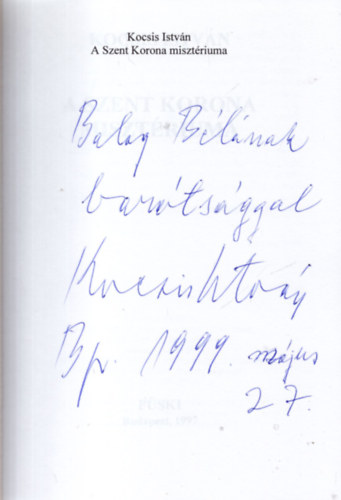 Kocsis István
A Szent Korona misztériuma
Balog Bélának
barátsággal
Kocsis István
Bp. 1999. május
27.